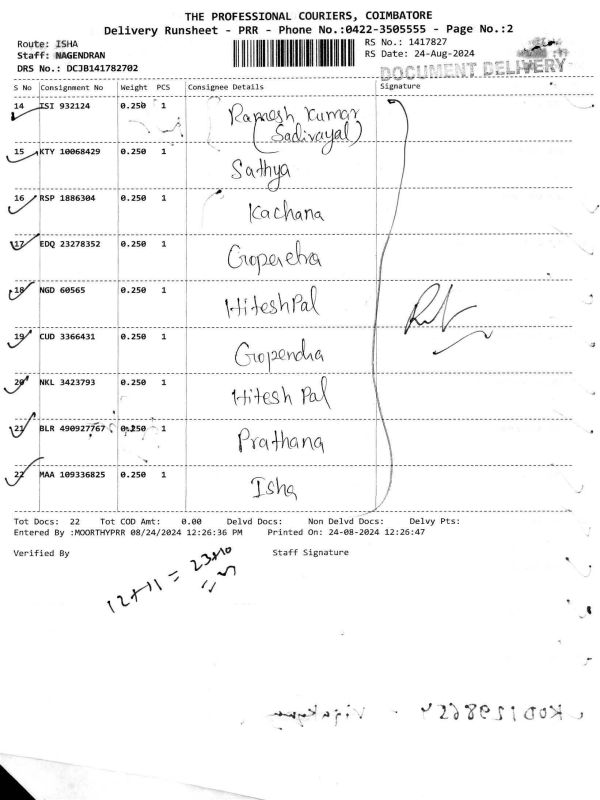 THE PROFESSIONAL COURIERS, COIMBATORE
Delivery Runsheet - PRR - Phone No.:0422-3505555 - Page No.:2
Route: ISHA
RS No.: 1417827
Staff: NAGENDRAN
RS Date: 24-Aug-2024
DRS No.: DCJB141782702
DOCUMENT DELIVERY
S No Consignment No Weight PCS Consignee Details Signature
14 ISI 932124 0.250 1 Ramesh Kumar
(Sadivayal)
15 KTY 10068429 0.250 1 Sathya
16 RSP 1886304 0.250 1 Kachana
17 EDQ 23278352 0.250 1
18 NGD 60565 0.250 1 Hitesh Pal
19 CUD 3366431 0.250 1 Gopendha
20 NKL 3423793 0.250 1 Hitesh Pal
21 BLR 490927767 0.250 1 Prathana
22 MAA 109336825 0.250 1 Isha
Tot Docs: 22 Tot COD Amt: 0.00 Delvd Docs: Non Delvd Docs: Delvy Pts:
Entered By :MOORTHYPRR 08/24/2024 12:26:36 PM Printed On: 24-08-2024 12:26:47
Verified By Staff Signature
12+11 =